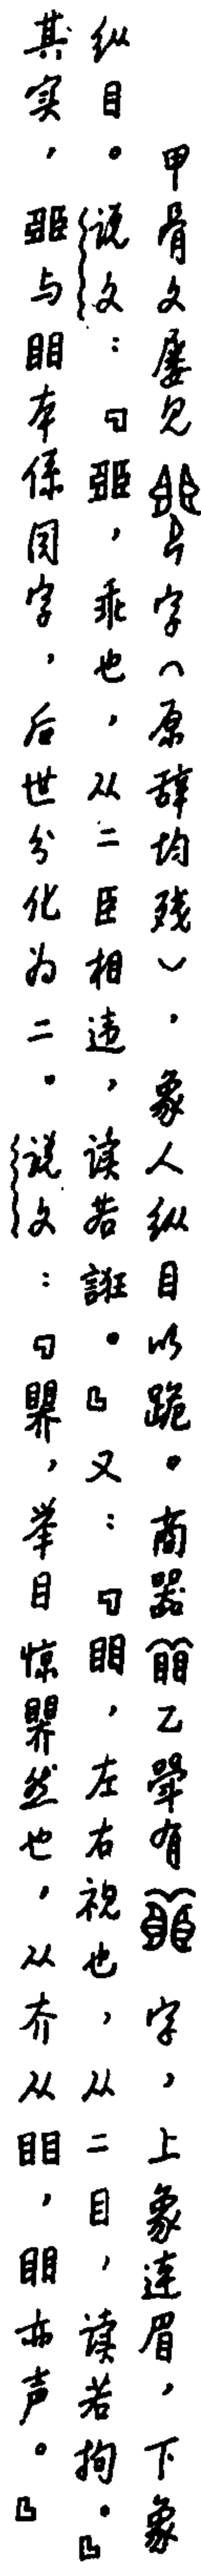 甲骨文屡见字（原辞均残），象人纵目以跪。商器䀠乙斝有字，上象连眉，下象
纵目。说文：「𦣦，乖也，从二臣相违，读若誑。」又：「䀠，左右視也，从二目，读若拘。」
其实，𦣦与䀠本係同字，后世分化为二。说文：「䁌，举目惊䁌然也，从夰从䀠，䀠亦声。」